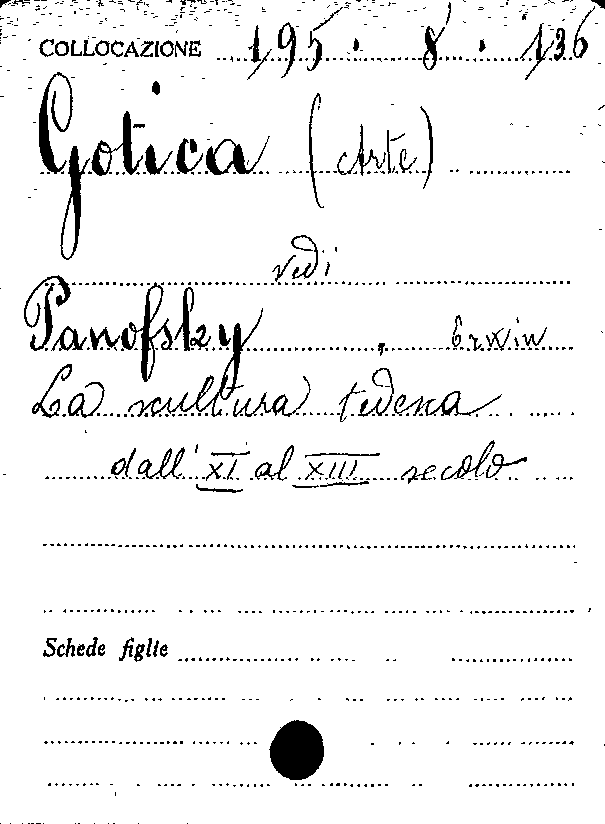 COLLOCAZIONE 195 . 8 . 136
Gotica (Arte)
vedi
Panofsky, Erwin
La scultura tedesca
dall' XI al XIII secolo
Schede figlie